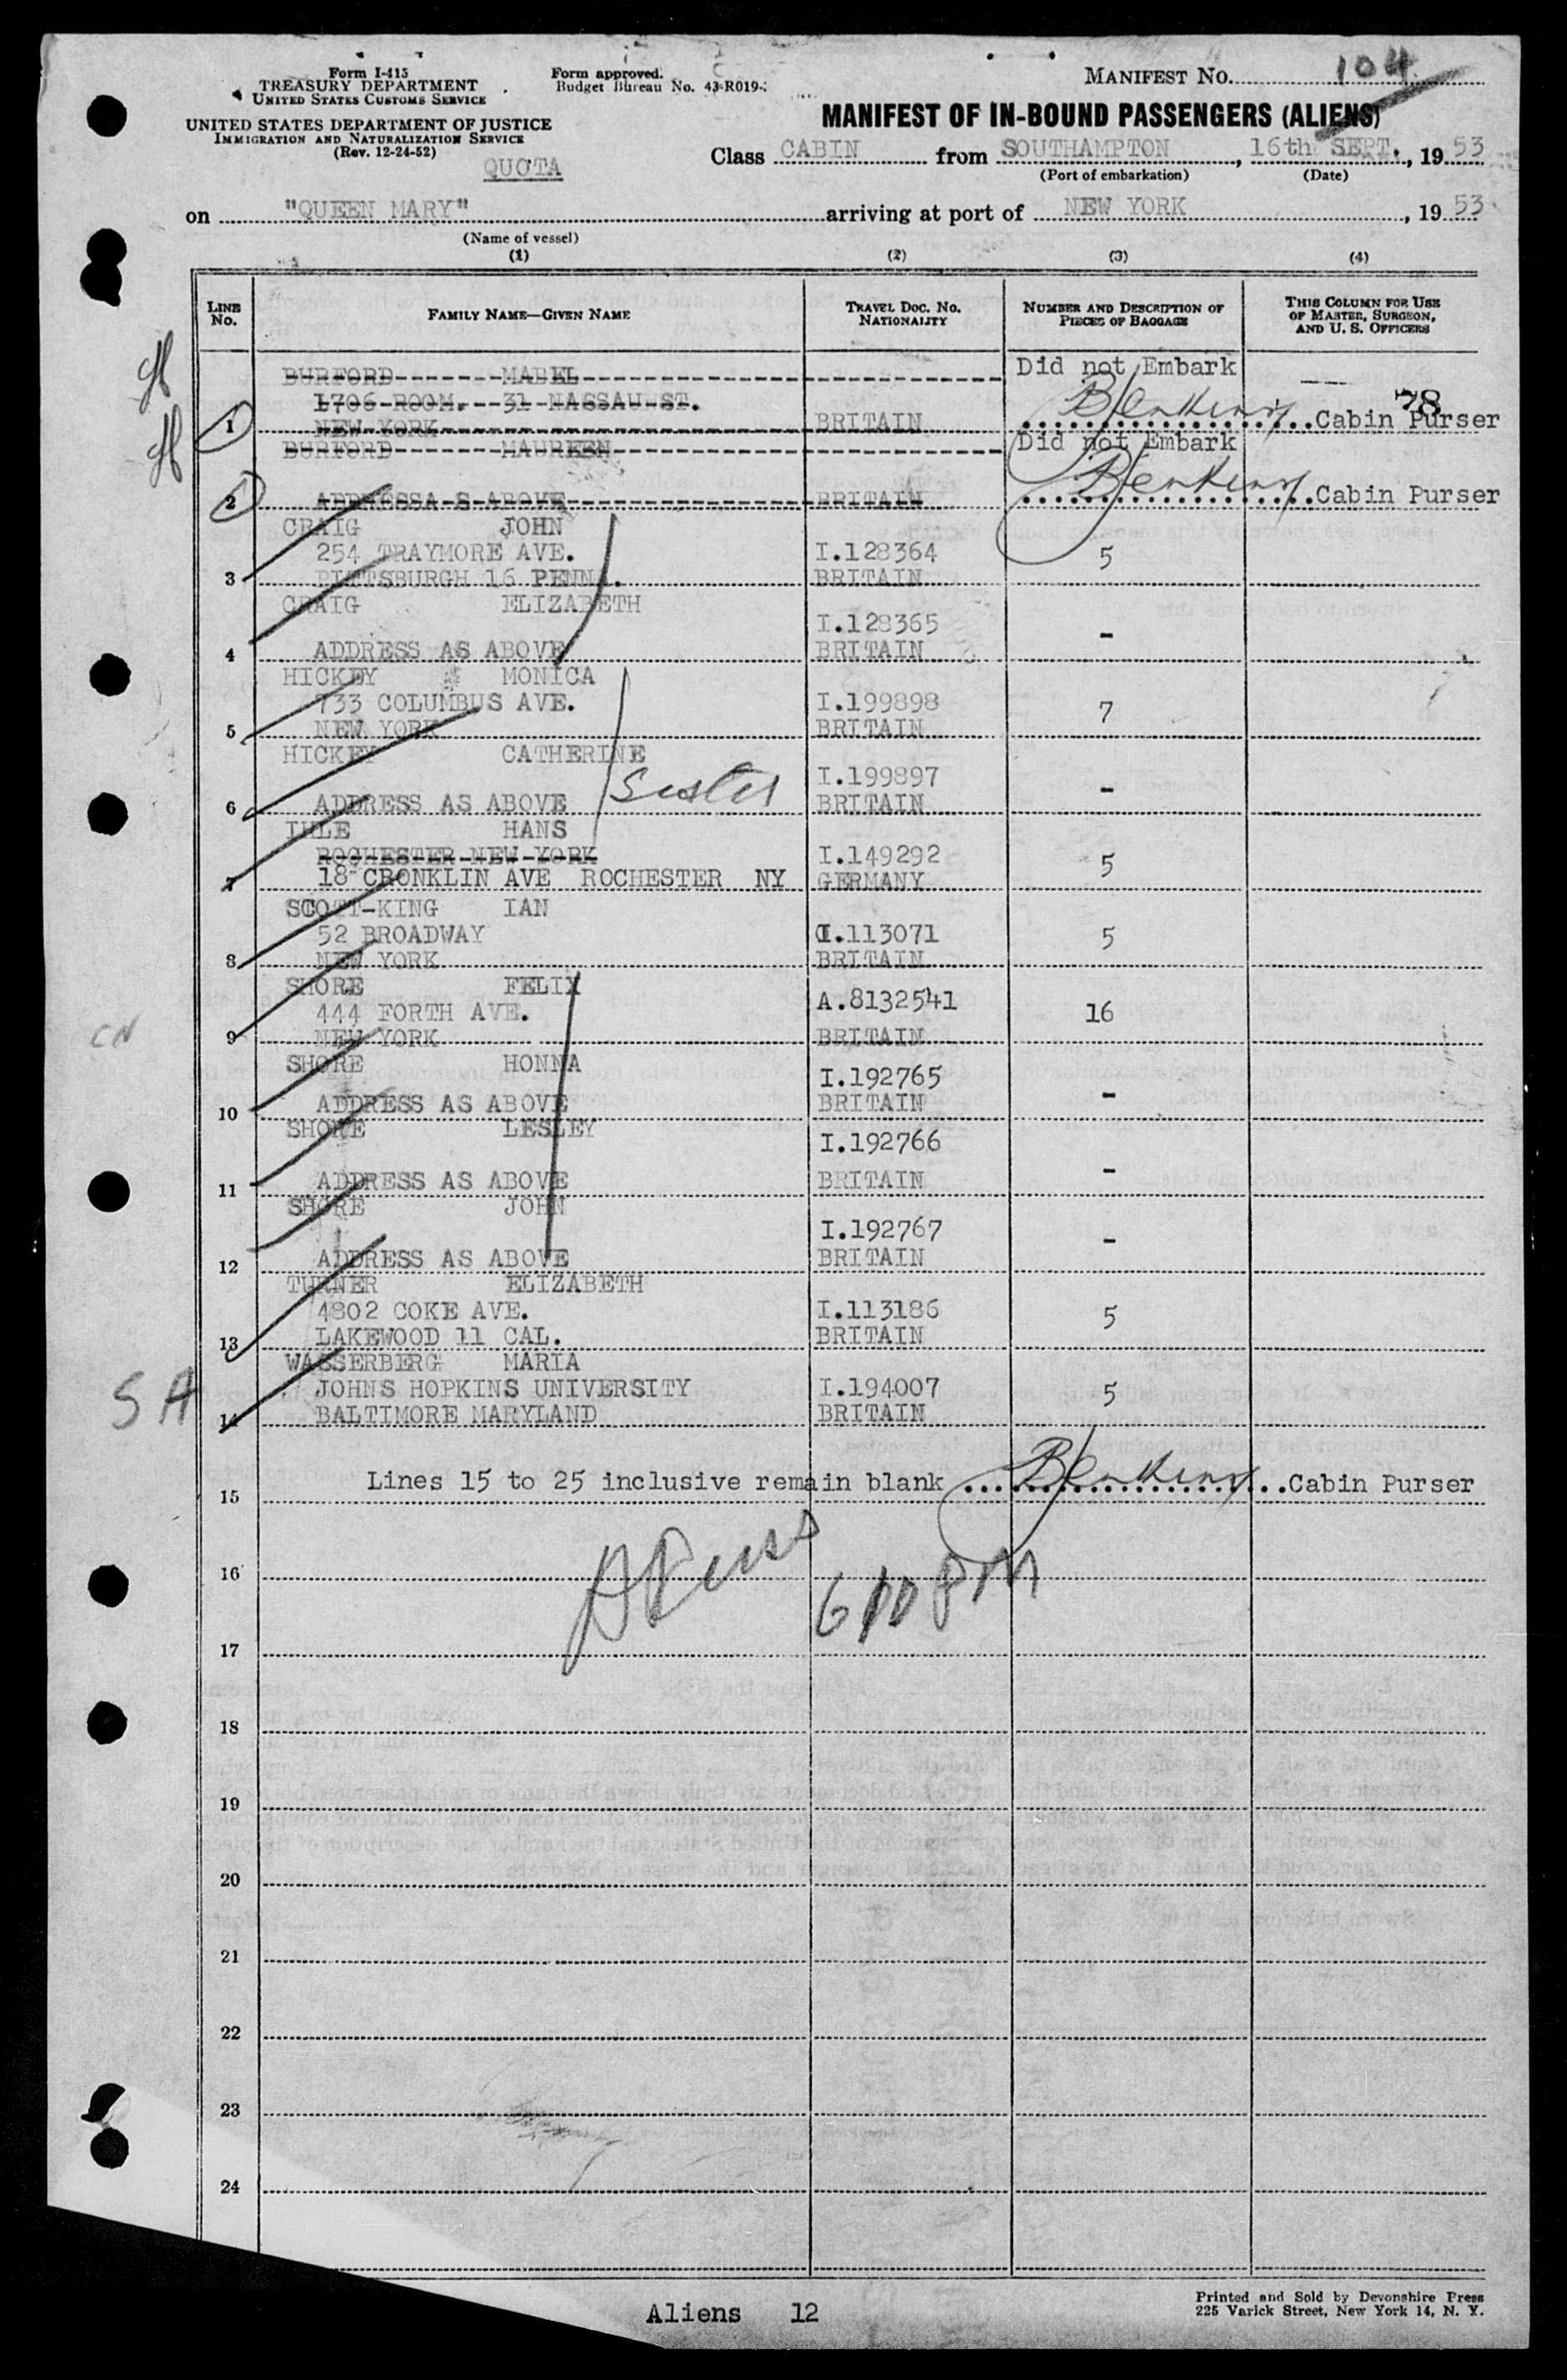 Form I-415
TREASURY DEPARTMENT
UNITED STATES CUSTOMS SERVICE
UNITED STATES DEPARTMENT OF JUSTICE
IMMIGRATION AND NATURALIZATION SERVICE
(Rev. 12-24-52)
QUOTA
Form approved.
Budget Bureau No. 43-R019-
MANIFEST NO. 104
MANIFEST OF IN-BOUND PASSENGERS (ALIENS)
Class CABIN from SOUTHAMPTON, 16th SEPT., 19 53
(Port of embarkation) (Date)
on "QUEEN MARY" arriving at port of NEW YORK, 19 53
(Name of vessel)
(1) (2) (3) (4)
LINE NO. FAMILY NAME—GIVEN NAME TRAVEL DOC. NO. NATIONALITY NUMBER AND DESCRIPTION OF PIECES OF BAGGAGE THIS COLUMN FOR USE OF MASTER, SURGEON, AND U. S. OFFICERS
BURFORD MABEL Did not Embark
1706 ROOM. 31 NASSAU ST. 78
1 NEW YORK BRITAIN Cabin Purser
BURFORD MAUREEN Did not Embark
2 ADDRESSA S ABOVE BRITAIN Cabin Purser
CRAIG JOHN
254 TRAYMORE AVE. I.128364 5
3 PITTSBURGH 16 PENNA. BRITAIN
CRAIG ELIZABETH
I.128365 -
4 ADDRESS AS ABOVE BRITAIN
HICKEY MONICA
733 COLUMBUS AVE. I.199898 7
5 NEW YORK BRITAIN
HICKEY CATHERINE
Sister I.199897 -
6 ADDRESS AS ABOVE BRITAIN
IHLE HANS
ROCHESTER NEW YORK I.149292 5
7 18 CRONKLIN AVE ROCHESTER NY GERMANY
SCOTT-KING IAN
52 BROADWAY I.113071 5
8 NEW YORK BRITAIN
SHORE FELIX
444 FORTH AVE. A.8132541 16
9 NEW YORK BRITAIN
CN
SHORE HONNA
I.192765 -
10 ADDRESS AS ABOVE BRITAIN
SHORE LESLEY
I.192766
11 ADDRESS AS ABOVE BRITAIN -
SHORE JOHN
I.192767 -
12 ADDRESS AS ABOVE BRITAIN
TURNER ELIZABETH
4802 COKE AVE. I.113186 5
13 LAKEWOOD 11 CAL. BRITAIN
WASSERBERG MARIA
JOHNS HOPKINS UNIVERSITY I.194007 5
SA
14 BALTIMORE MARYLAND BRITAIN
Lines 15 to 25 inclusive remain blank Cabin Purser
15
16
600 PM
17
18
19
20
21
22
23
24
Aliens 12
Printed and Sold by Devonshire Press
225 Varick Street, New York 14, N. Y.